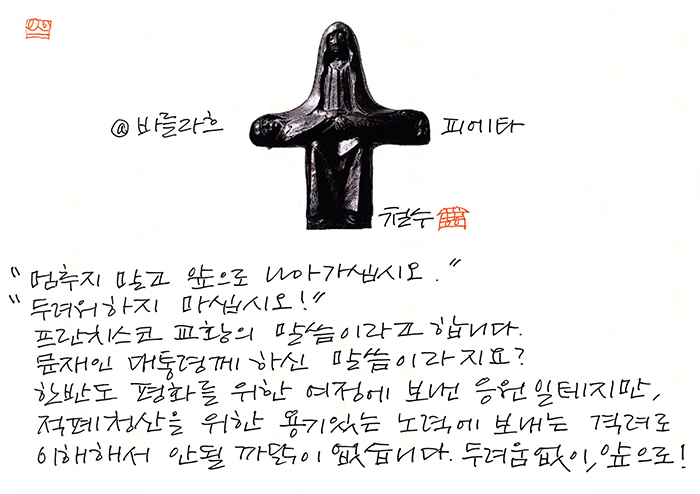 @ 바를라흐 피에타
철수
"멈추지 말고 앞으로 나아가십시오."
"두려워하지 마십시오!"
프란치스코 교황의 말씀이라고 합니다.
문재인 대통령께 하신 말씀이라지요?
한반도 평화를 위한 여정에 보낸 응원일테지만,
적폐청산을 위한 용기있는 노력에 보내는 격려로
이해해서 안될 까닭이 없습니다. 두려움없이, 앞으로!